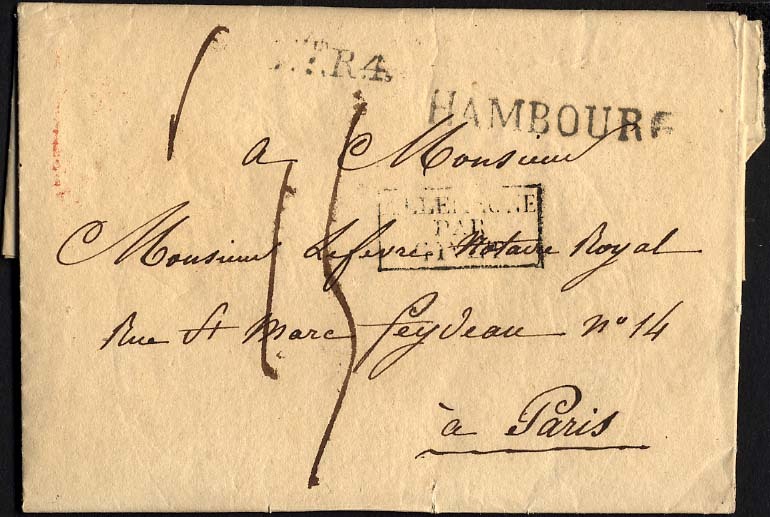 R.4.
HAMBOURG
a Monsieur
ALLEMAGNE
PAR
Monsieur Lefevre Notaire Royal
Rue St Marc feydeau n° 14
à Paris